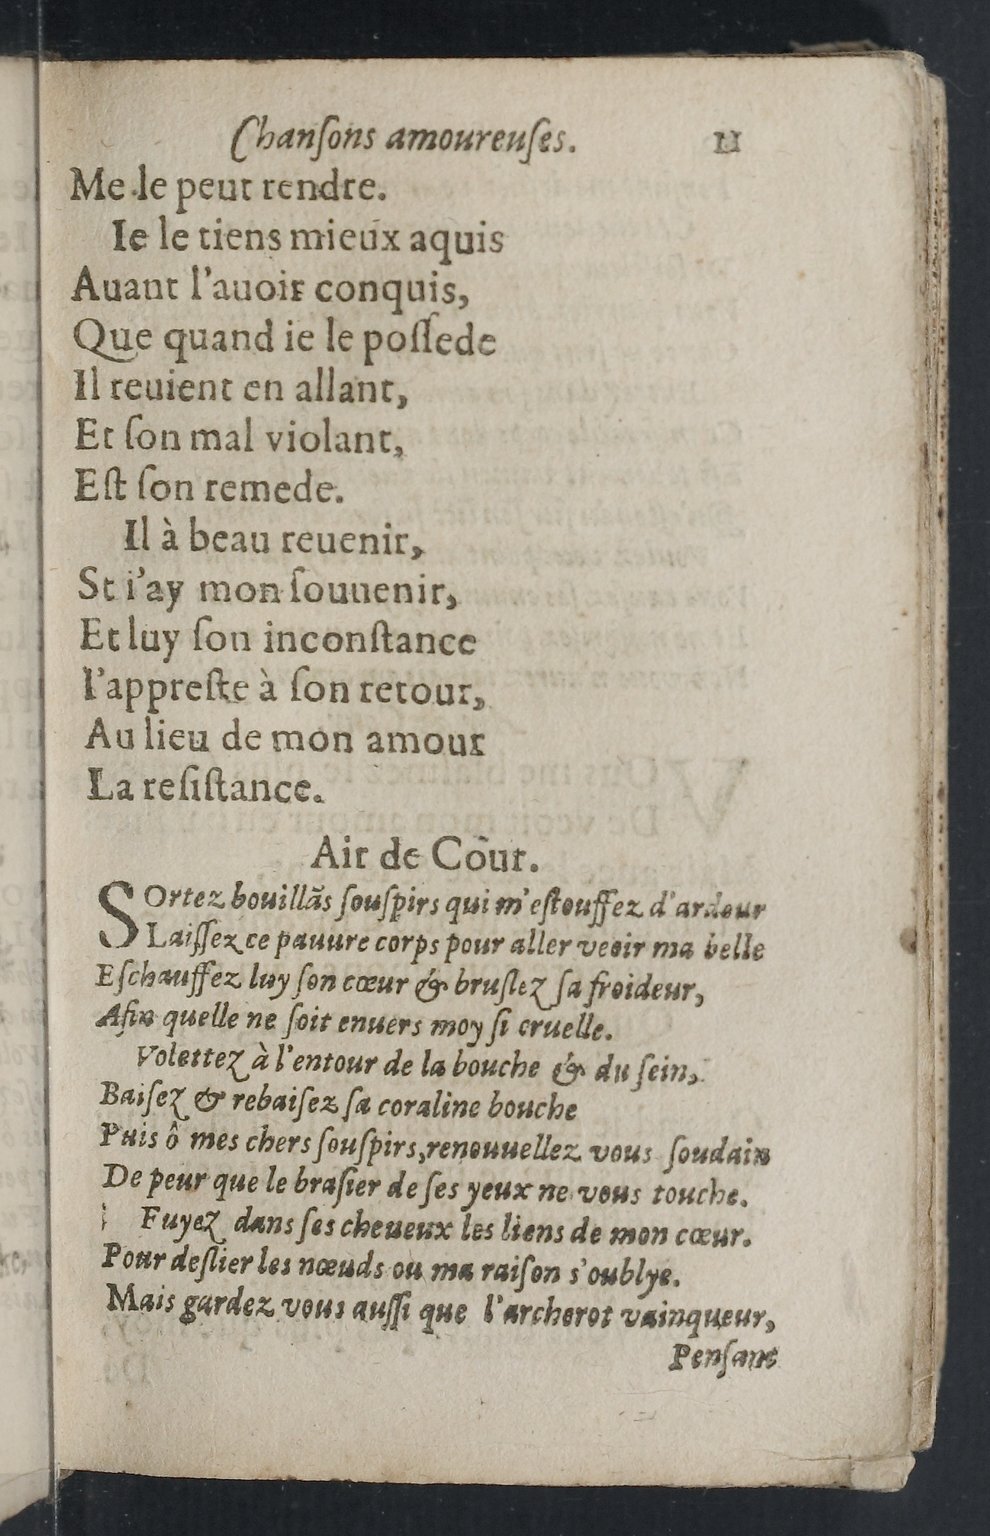 Chanſons amoureuſes. 11
Me le peut rendre.
Ie le tiens mieux aquis
Auant l'auoir conquis,
Que quand ie le poſſede
Il reuient en allant,
Et ſon mal violant,
Eſt ſon remede.
Il à beau reuenir,
St i'ay mon ſouuenir,
Et luy ſon inconſtance
I'appreſte à ſon retour,
Au lieu de mon amour
La reſiſtance.
Air de Cour.
SOrtez bouillãs ſouſpirs qui m'eſtouffez d'ardeur
Laiſſez ce pauure corps pour aller veoir ma belle
Eſchauffez luy ſon cœur & bruſlez ſa froideur,
Afin quelle ne ſoit enuers moy ſi cruelle.
Volettez à l'entour de la bouche & du ſein,
Baiſez & rebaiſez ſa coraline bouche
Puis ô mes chers ſouſpirs, renouuellez vous ſoudain
De peur que le braſier de ſes yeux ne vous touche.
Fuyez dans ſes cheueux les liens de mon cœur.
Pour deſlier les nœuds ou ma raiſon s'oublye.
Mais gardez vous auſſi que l'archerot vainqueur,
Penſant